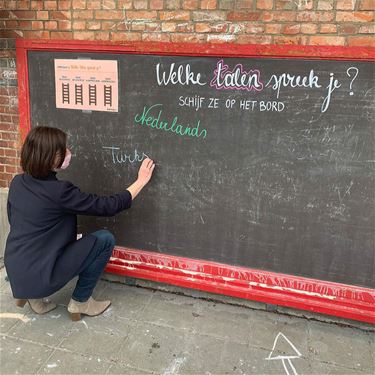 Welke talen spreek je?
SCHIJF ZE OP HET BORD
Nederlands
Turks